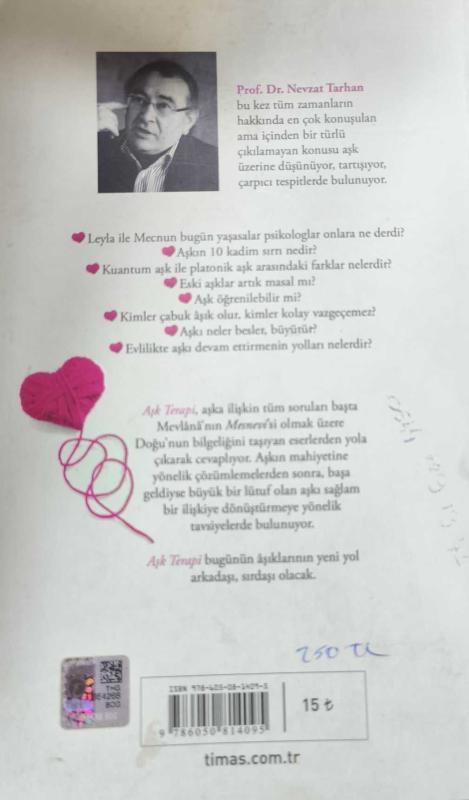 Prof. Dr. Nevzat Tarhan
bu kez tüm zamanların
hakkında en çok konuşulan
ama içinden bir türlü
çıkılamayan konusu aşk
üzerine düşünüyor, tartışıyor,
çarpıcı tespitlerde bulunuyor.
Leyla ile Mecnun bugün yaşasalar psikologlar onlara ne derdi?
Aşkın 10 kadim sırrı nedir?
Kuantum aşk ile platonik aşk arasındaki farklar nelerdir?
Eski aşklar artık masal mı?
Aşk öğrenilebilir mi?
Kimler çabuk âşık olur, kimler kolay vazgeçemez?
Aşkı neler besler, büyütür?
Evlilikte aşkı devam ettirmenin yolları nelerdir?
Aşk Terapi, aşka ilişkin tüm soruları başta
Mevlânâ'nın Mesnevi'si olmak üzere
Doğu'nun bilgeliğini taşıyan eserlerden yola
çıkarak cevaplıyor. Aşkın mahiyetine
yönelik çözümlemelerden sonra, başa
geldiyse büyük bir lütuf olan aşkı sağlam
bir ilişkiye dönüştürmeye yönelik
tavsiyelerde bulunuyor.
Aşk Terapi bugünün âşıklarının yeni yol
arkadaşı, sırdaşı olacak.
250 TL
ISBN 978-605-08-1409-5
15 ₺
9 786050 814095
timas.com.tr